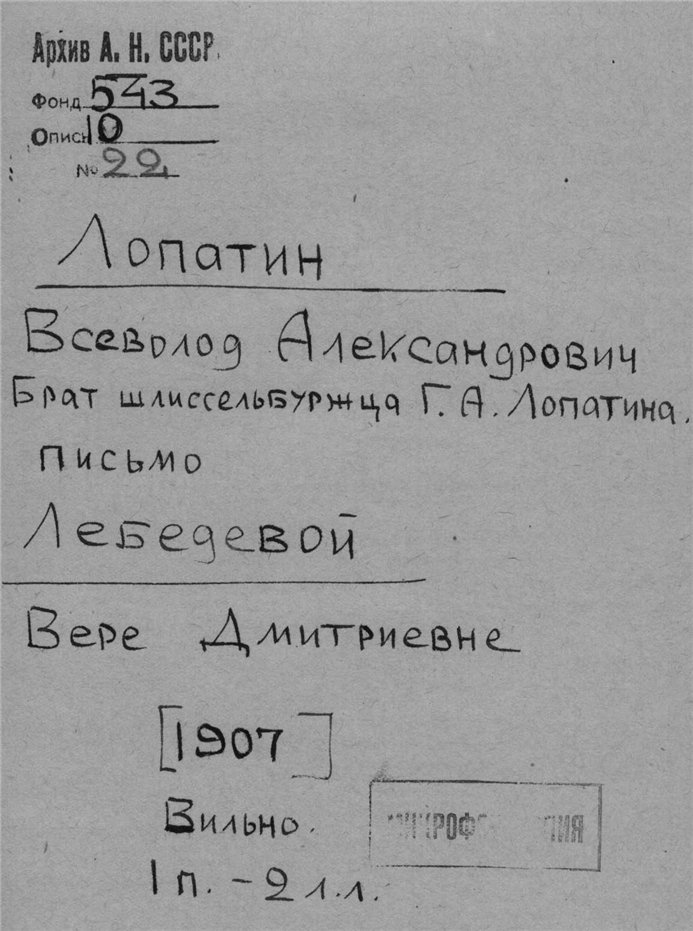 Архив А. Н. СССР.
Фонд 543
Опись 10
№ 22
Лопатин
Всеволод Александрович
Брат шлиссельбуржца Г. А. Лопатина.
письмо
Лебедевой
Вере Дмитриевне
[1907]
Вильно.
1 п. – 2 л.л.